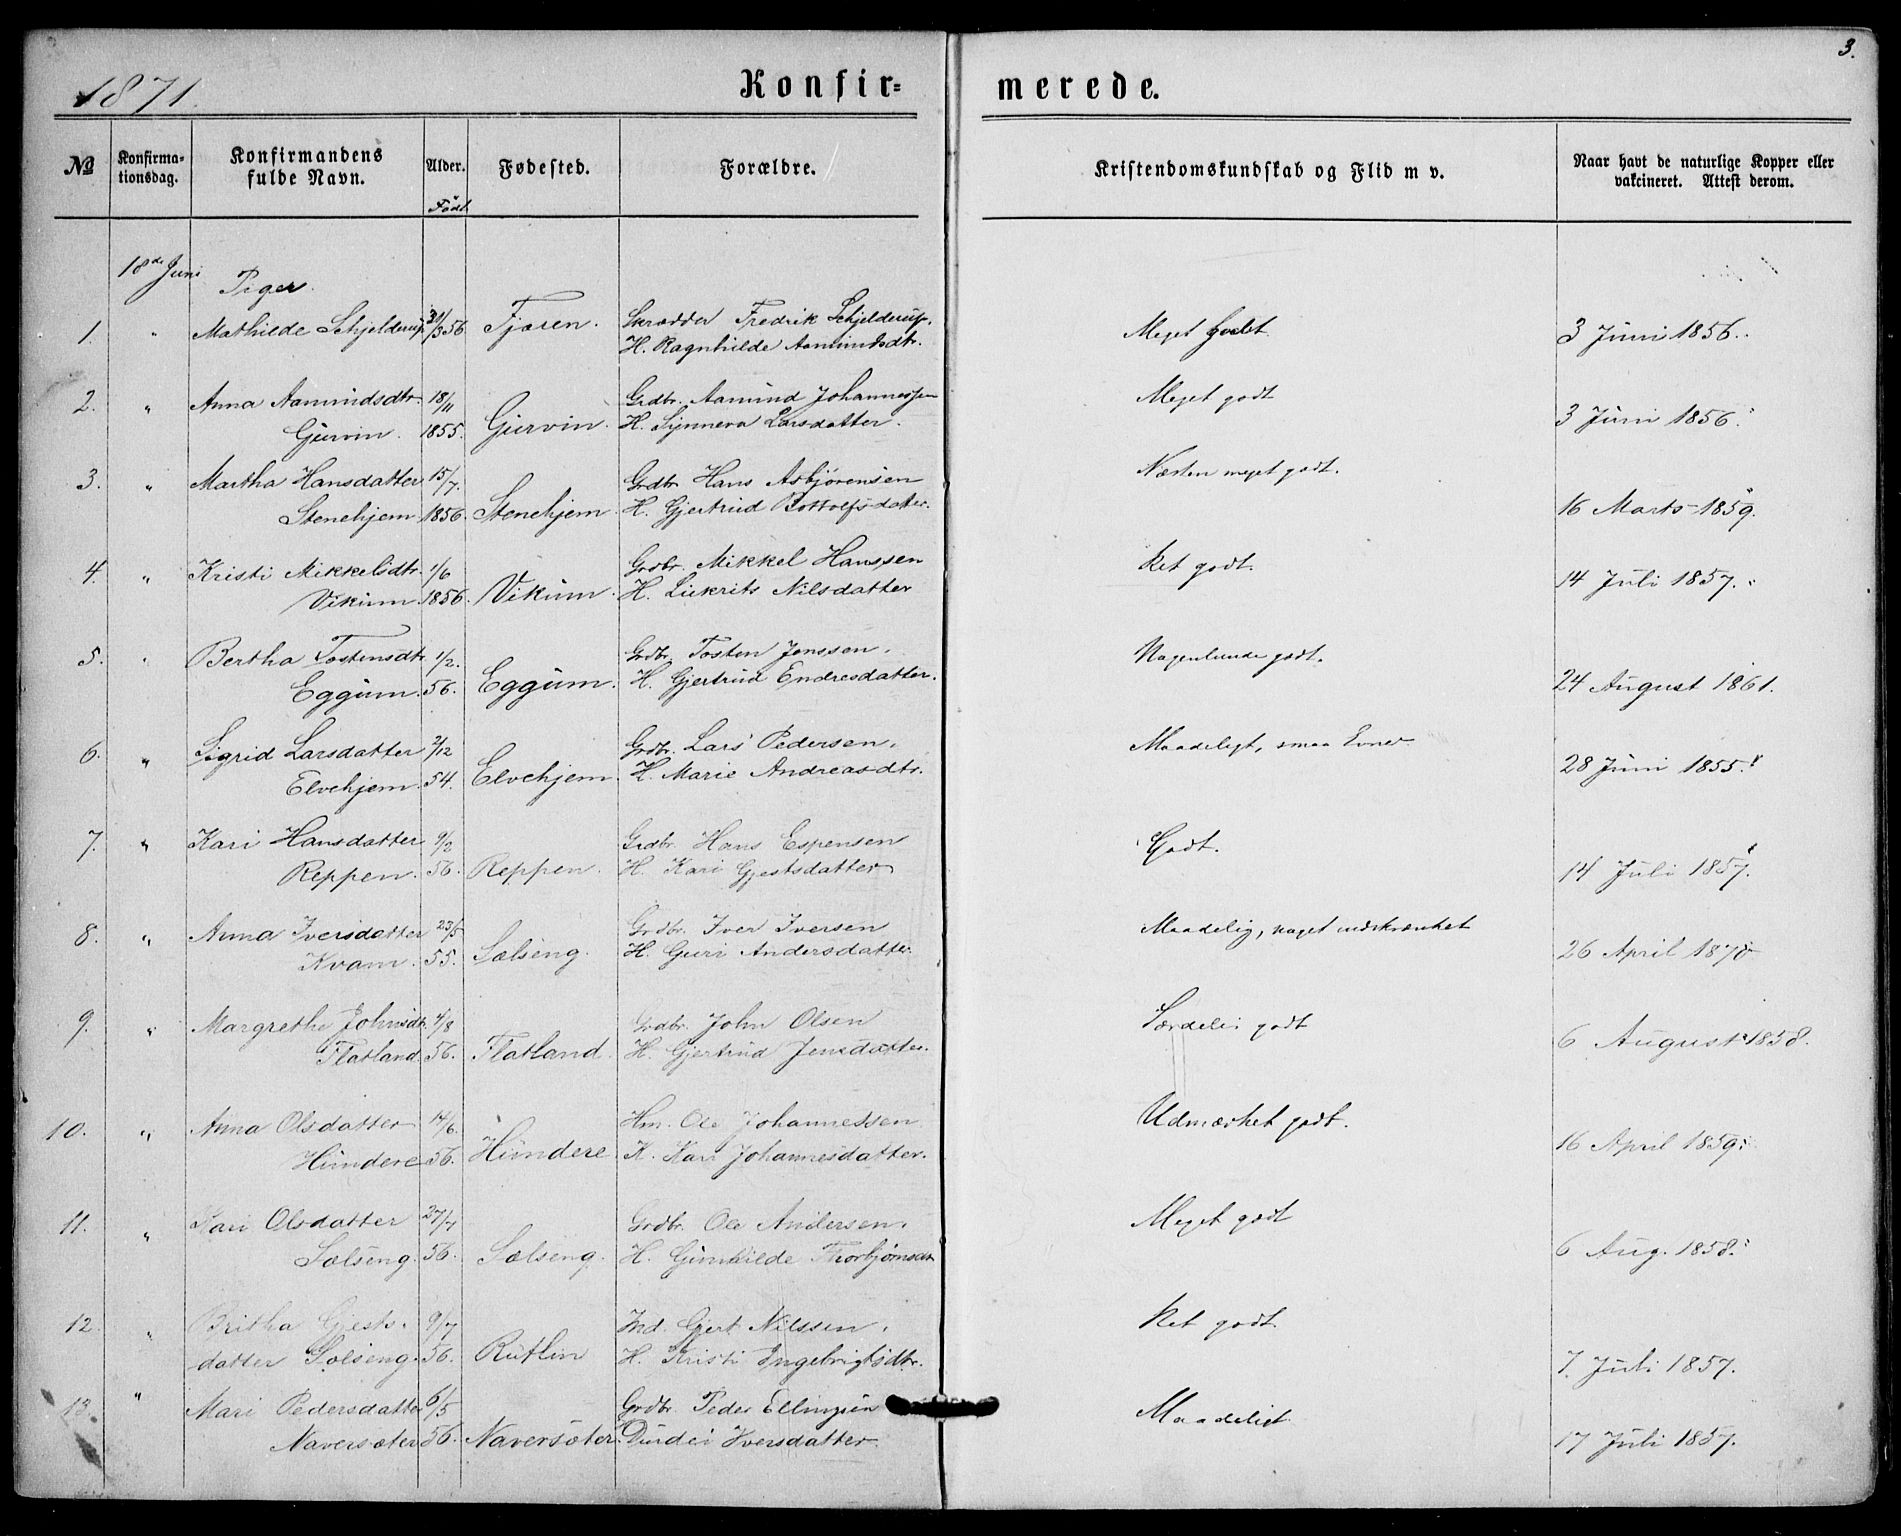 3.
1871.
Konfirmerede.
№ Konfirmationsdag. Konfirmandens fulde Navn. Alder. Født Fødested. Forældre. Kristendomskundskab og Flid m v. Naar havt de naturlige Kopper eller vakcineret. Attest derom.
18de Juni Piger.
1. " Mathilde Schjelderup 56 Fjæren. Skrædder Fredrik Schjelderup. Meget godt 3 Juni 1856.
H. Ragnhilde Aamundsdtr.
2. " Anna Aamundsdtr. 18/11 Grdbr. Aamund Johannessen Meget godt
Gurvin. 1855. Gurvin. H. Synneva Larsdatter. 3 Juni 1856.
3. " Martha Hansdatter 15/7. Grdbr Hans Asbjørensen Næsten meget godt.
Stenehjem 1856. Stenehjem H. Gjertrud Bottolfsdatter. 16 Marts 1859.
4. " Kristi Mikkelsdtr. 1/6 Grdbr. Mikkel Hanssen Ret godt.
Vikum. 1856. Vikum. H. Nilsdatter 14 Juli 1857.
5. " Bertha Tostensdtr. 1/2. Grdbr. Tosten Jenssen. Nogenlunde godt.
Eggum. 56. Eggum. H. Gjertrud Endresdatter. 24 August 1861.
6. " Sigrid Larsdatter 2/12 Grdbr. Lars Pedersen. Maadeligt, smaa Evner
Elvehjem. 54. Elvehjem H. Marie Andreasdtr. 28 Juni 1855.
7. " Kari Hansdatter 9/2 Grdbr. Hans Espensen Godt.
Reppen. 56. Reppen. H. Kari Gjestsdatter 14 Juli 1857.
8. " Anna Iversdatter 23/5 Grdbr. Iver Iversen Maadelig, noget indskrænket
Kvam. 55. Sælseng. H. Guri Andersdatter. 26 April 1870
9. " Margrethe Johnsdtr. 4/8 Grdbr. John Olsen Særdeles godt
Flatland 56. Flatland. H. Gjertrud Jensdatter. 6 August 1858.
10. " Anna Olsdatter 14/6. Hm. Ole Johannessen Udmærket godt.
Hundere 56. Hundere K. Kari Johannesdatter. 16 April 1859.
11. " Kari Olsdatter 27/7 Grdbr. Ole Andersen. Meget godt
Sælseng. 56. Sælseng. H. Gunhilde Thorbjørnsdtr 6 Aug. 1858.
12. " Britha Gjests- 9/7 Ind. Gjert Nilssen. Ret godt.
datter Sælseng. 56. Rutlin H. Kristi Ingebrigtsdtr. 7. Juli 1857.
13. " Mari Pedersdatter 6/5 Grdbr. Peder Ellingsen Maadeligt
Naversæter 56. Naversæter. Durdei Iversdatter. 17 Juli 1857.